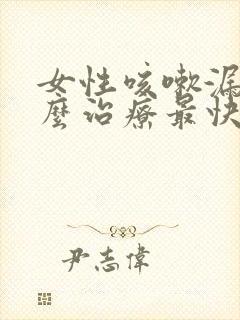 女性咳嗽漏
麼治療最快
尹志偉